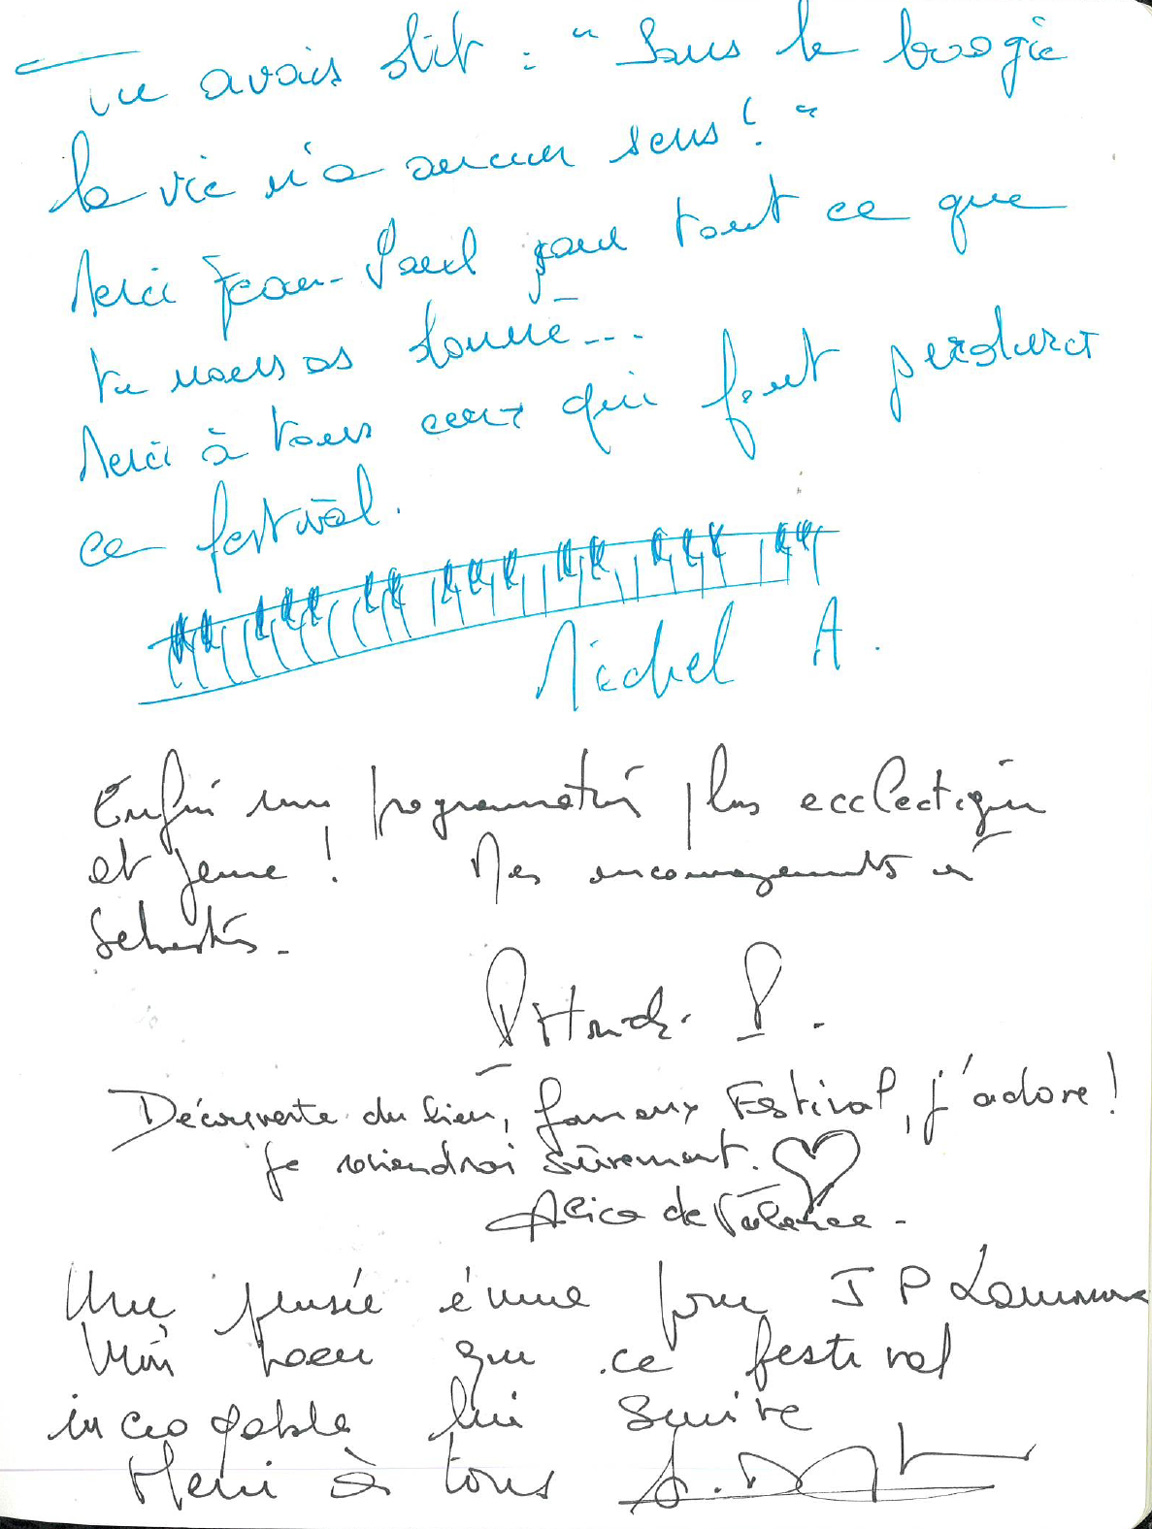 Tu avais dit : "Sans le boogie
la vie n'a aucun sens ! "
Merci Jean-Paul pour tout ce que
tu nous as donné...
Merci à tous ceux qui font perdurer
ce festival.
Michel A.
Enfin une programmation plus ecclectique
et jeune ! Mes encouragements à
Sébastien.
P.
Découverte du lieu, fameux Festival, j'adore !
Je reviendrai sûrement.
Alice de Valence.
Une pensée émue pour J P
bien que ce festival
incroyable lui
Merci à tous